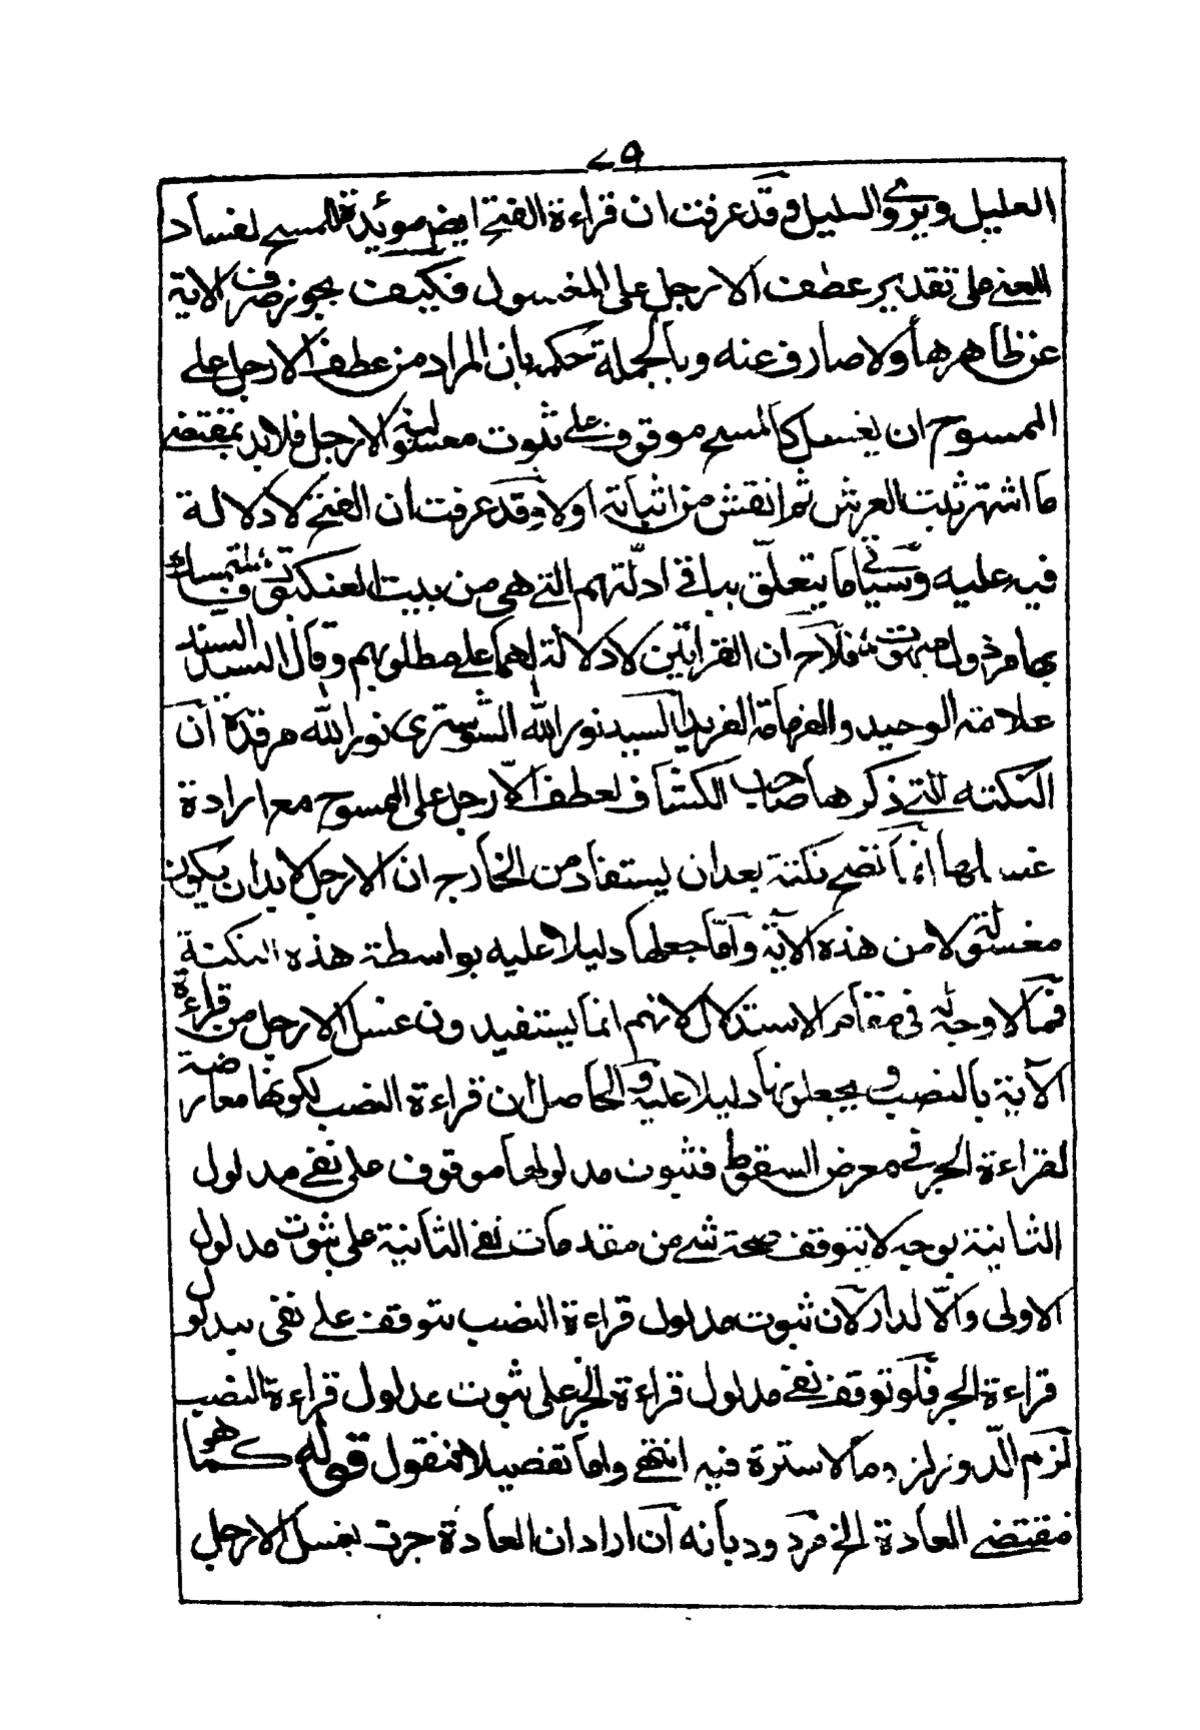 ٧٩
العليل ويروي السليل وقد عرفت ان قراءة الفتح ايضم مويدة للمسح لفساد
المعنے على تقدير عطف الارجل على المغسول فكيف يجوز صرف الاية
عن ظاهرها ولا صارف عنه وبالجملة حكمه بان المراد من عطف الارجل علے
الممسوح ان يغسل كالمسح موقوف علے ثبوت مغسولية الارجل فلا بد بمقتضے
ما اشتهر ثبت العرش ثم انقش من اثباته اولا وقد عرفت ان الفتح لا دلالة
فيه عليه وسياتي ما يتعلق بباقے ادلّتهم التے هي من بيت العنكبوت
بها فلاح ان القرائتين لا دلالة لهما علے مطلوبهم وقال السيد السند
علامة الوحيد والفهامة الفريد السيد نور الله الشوستري نور الله مرقده ان
النكتة التے ذكرها صاحب الكشاف لعطف الارجل على الممسوح مع ارادة
غسلها انما تضح نكتة بعد ان يستفاد من الخارج ان الارجل لابد ان يكون
مغسولة لا من هذه الآية وامّا جعلها دليلا عليه بواسطة هذه النكتة
فمما لا وجه له في مقام الاستدلال لانهم انما يستفيدون غسل الارجل من قراءة
الآية بالنصب ويجعلونها دليلا عليه والحاصل ان قراءة النصب لكونها معارضة
لقراءة الجر في معرض السقوط فثبوت مدلولها موقوف على نفے مدلول
الثانية بوجه لا يتوقف صحة شے من مقدمات نفے الثانية على ثبوت مدلول
الاولى والّا لدار لان ثبوت مدلول قراءة النصب يتوقف علے نفي مدلول
قراءة الجر فلو توقف نفے مدلول قراءة الجر على ثبوت مدلول قراءة النصب
لزم الدّور لزوما لا سترة فيه انتهے واما تفصيلا فنقول قوله كما هو
مقتضے العادة الخ مردود بانه ان اراد ان العادة جرت بغسل الارجل